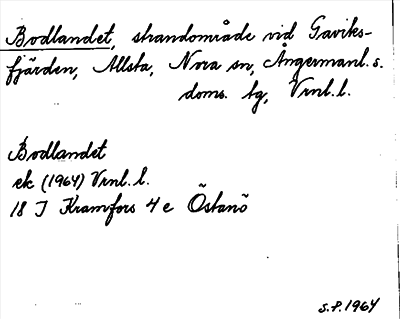 Bodlandet, strandområde vid Gaviks-
fjärden, Allsta, Nora sn, Ångermanl. s.
doms. tg, Vrnl. l.
Bodlandet
ek (1964) Vrnl. l.
18 J Kramfors 4 e Östanö
S.P. 1964